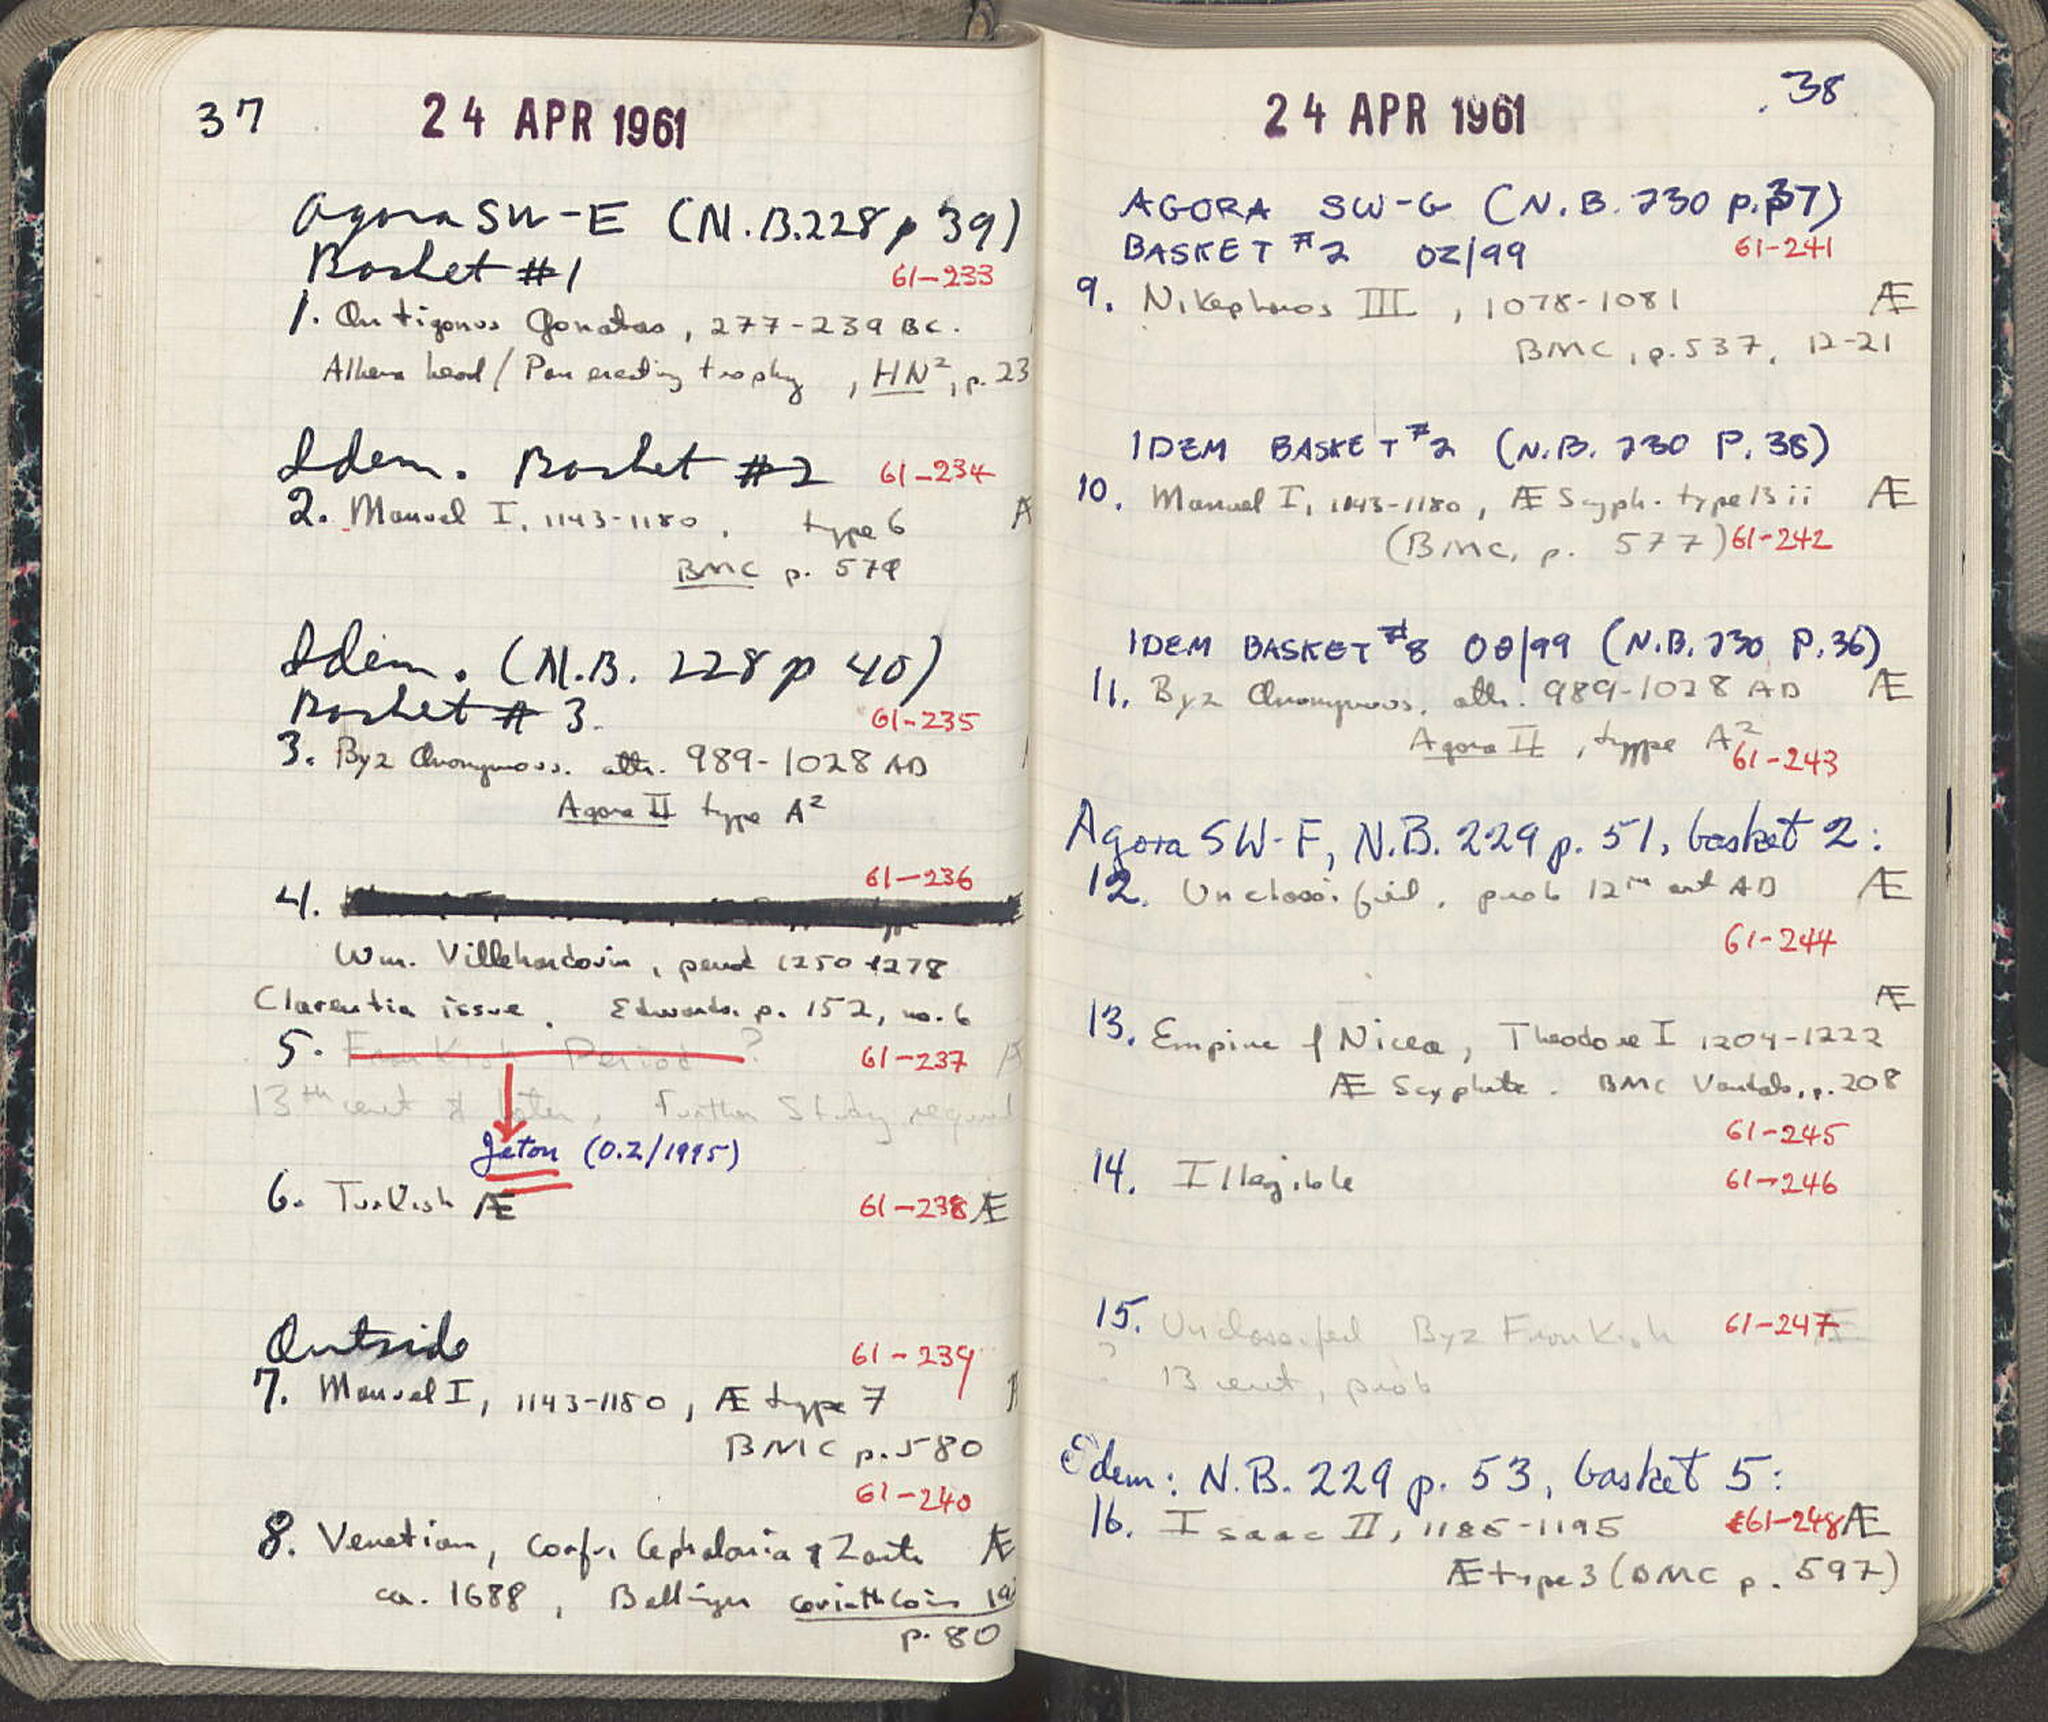 37
24 APR 1961
Agora SW-E (N.B. 228 p 39)
Basket #1
61-233
1. Antigonos Gonatas, 277-239 BC.
Athena head / Pan erecting trophy, HN², p. 23
Idem. Basket #2
61-234
2. Manuel I, 1143-1180, type 6
BMC p. 579
Idem. (N.B. 228 p 40)
Basket # 3.
61-235
3. Byz Anonymous. attr. 989-1028 AD
Agora II type A²
61-236
4.
Wm. Villehardouin, period 1250-1278
Clarentia issue. Edwards. p. 152, no. 6
5. Frankish Period ?
61-237
13th cent & later, Further Study required
Jeton (O.Z/1995)
6. Turkish Æ
61-238 Æ
Outside
61-239
7. Manuel I, 1143-1180, Æ type 7
BMC p. 580
61-240
8. Venetian, Corfu, Cephalonia & Zante Æ
ca. 1688, Bellinger Corinth Coins
p. 80
38
24 APR 1961
AGORA SW-G (N.B. 230 p. 37)
BASKET #2 OZ/99
61-241
9. Nikephoros III, 1078-1081 Æ
BMC, p. 537, 12-21
IDEM BASKET #2 (N.B. 230 P. 38)
10. Manuel I, 1143-1180, Æ Scyph. type 13 ii Æ
(BMC, p. 577) 61-242
IDEM BASKET #8 OΘ/99 (N.B. 230 P. 36)
11. Byz Anonymous, attr. 989-1028 AD Æ
Agora II, type A²
61-243
Agora SW-F, N.B. 229 p. 51, basket 2:
12. Unclassified, prob 12th cent AD Æ
61-244
Æ
13. Empire of Nicea, Theodore I 1204-1222
Æ Scyphate. BMC Vandals, p. 208
61-245
14. Illegible
61-246
15. Unclassified Byz Frankish
61-247 Æ
? 13 cent, prob
Idem: N.B. 229 p. 53, basket 5:
16. Isaac II, 1185-1195
61-248 Æ
Æ type 3 (BMC p. 597)